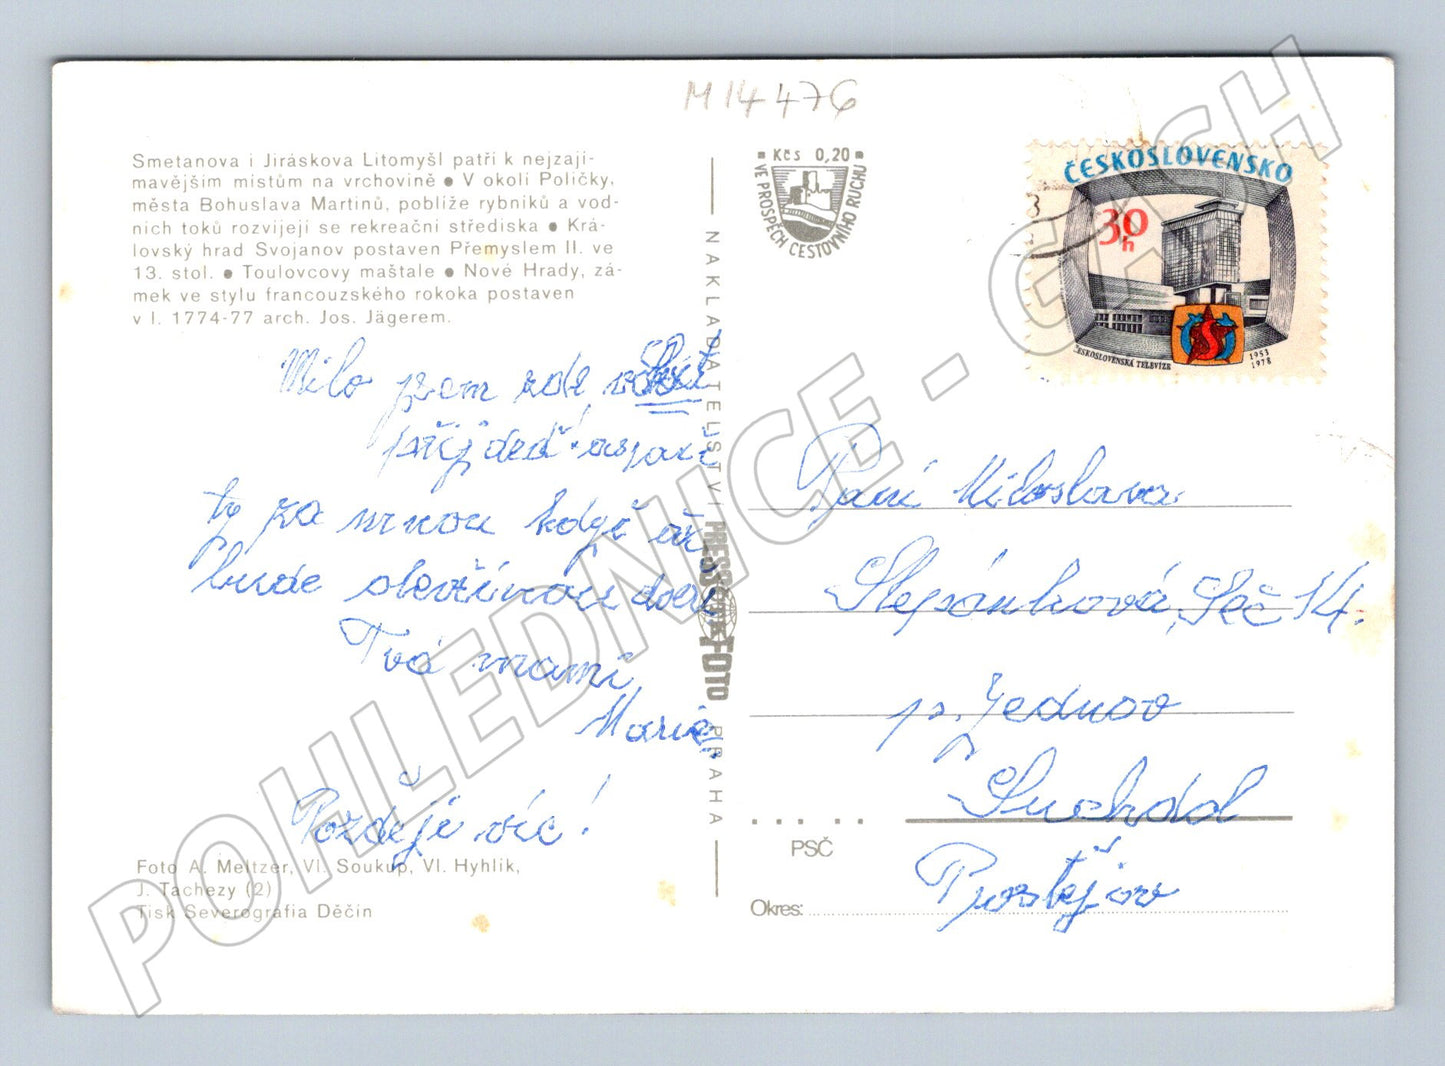 M 14 476
Smetanova i Jiráskova Litomyšl patří k nejzají-
mavějším místům na vrchovině ● V okolí Poličky,
města Bohuslava Martinů, poblíže rybníků a vod-
ních toků rozvíjejí se rekreační střediska ● Krá-
lovský hrad Svojanov postaven Přemyslem II. ve
13. stol. ● Toulovcovy maštale ● Nové Hrady, zá-
mek ve stylu francouzského rokoka postaven
v l. 1774-77 arch. Jos. Jägerem.
Milo jsem zde,
ty za mnou když
bude
Tvá mami
Marie
Později víc!
Foto A. Meltzer, Vl. Soukup, Vl. Hyhlík,
J. Tachezy (2)
Tisk Severografia Děčín
NAKLADATELSTVÍ PRESSFOTO PRAHA
Kčs 0,20
VE PROSPĚCH CESTOVNÍHO RUCHU
ČESKOSLOVENSKO
30 h
ČESKOSLOVENSKÁ TELEVIZE
1953
1978
Paní Miloslava
Štěpánková, Seč 14.
p. Jednov
Suchdol
PSČ
Prostějov
Okres:
POHLEDNICE - GASH